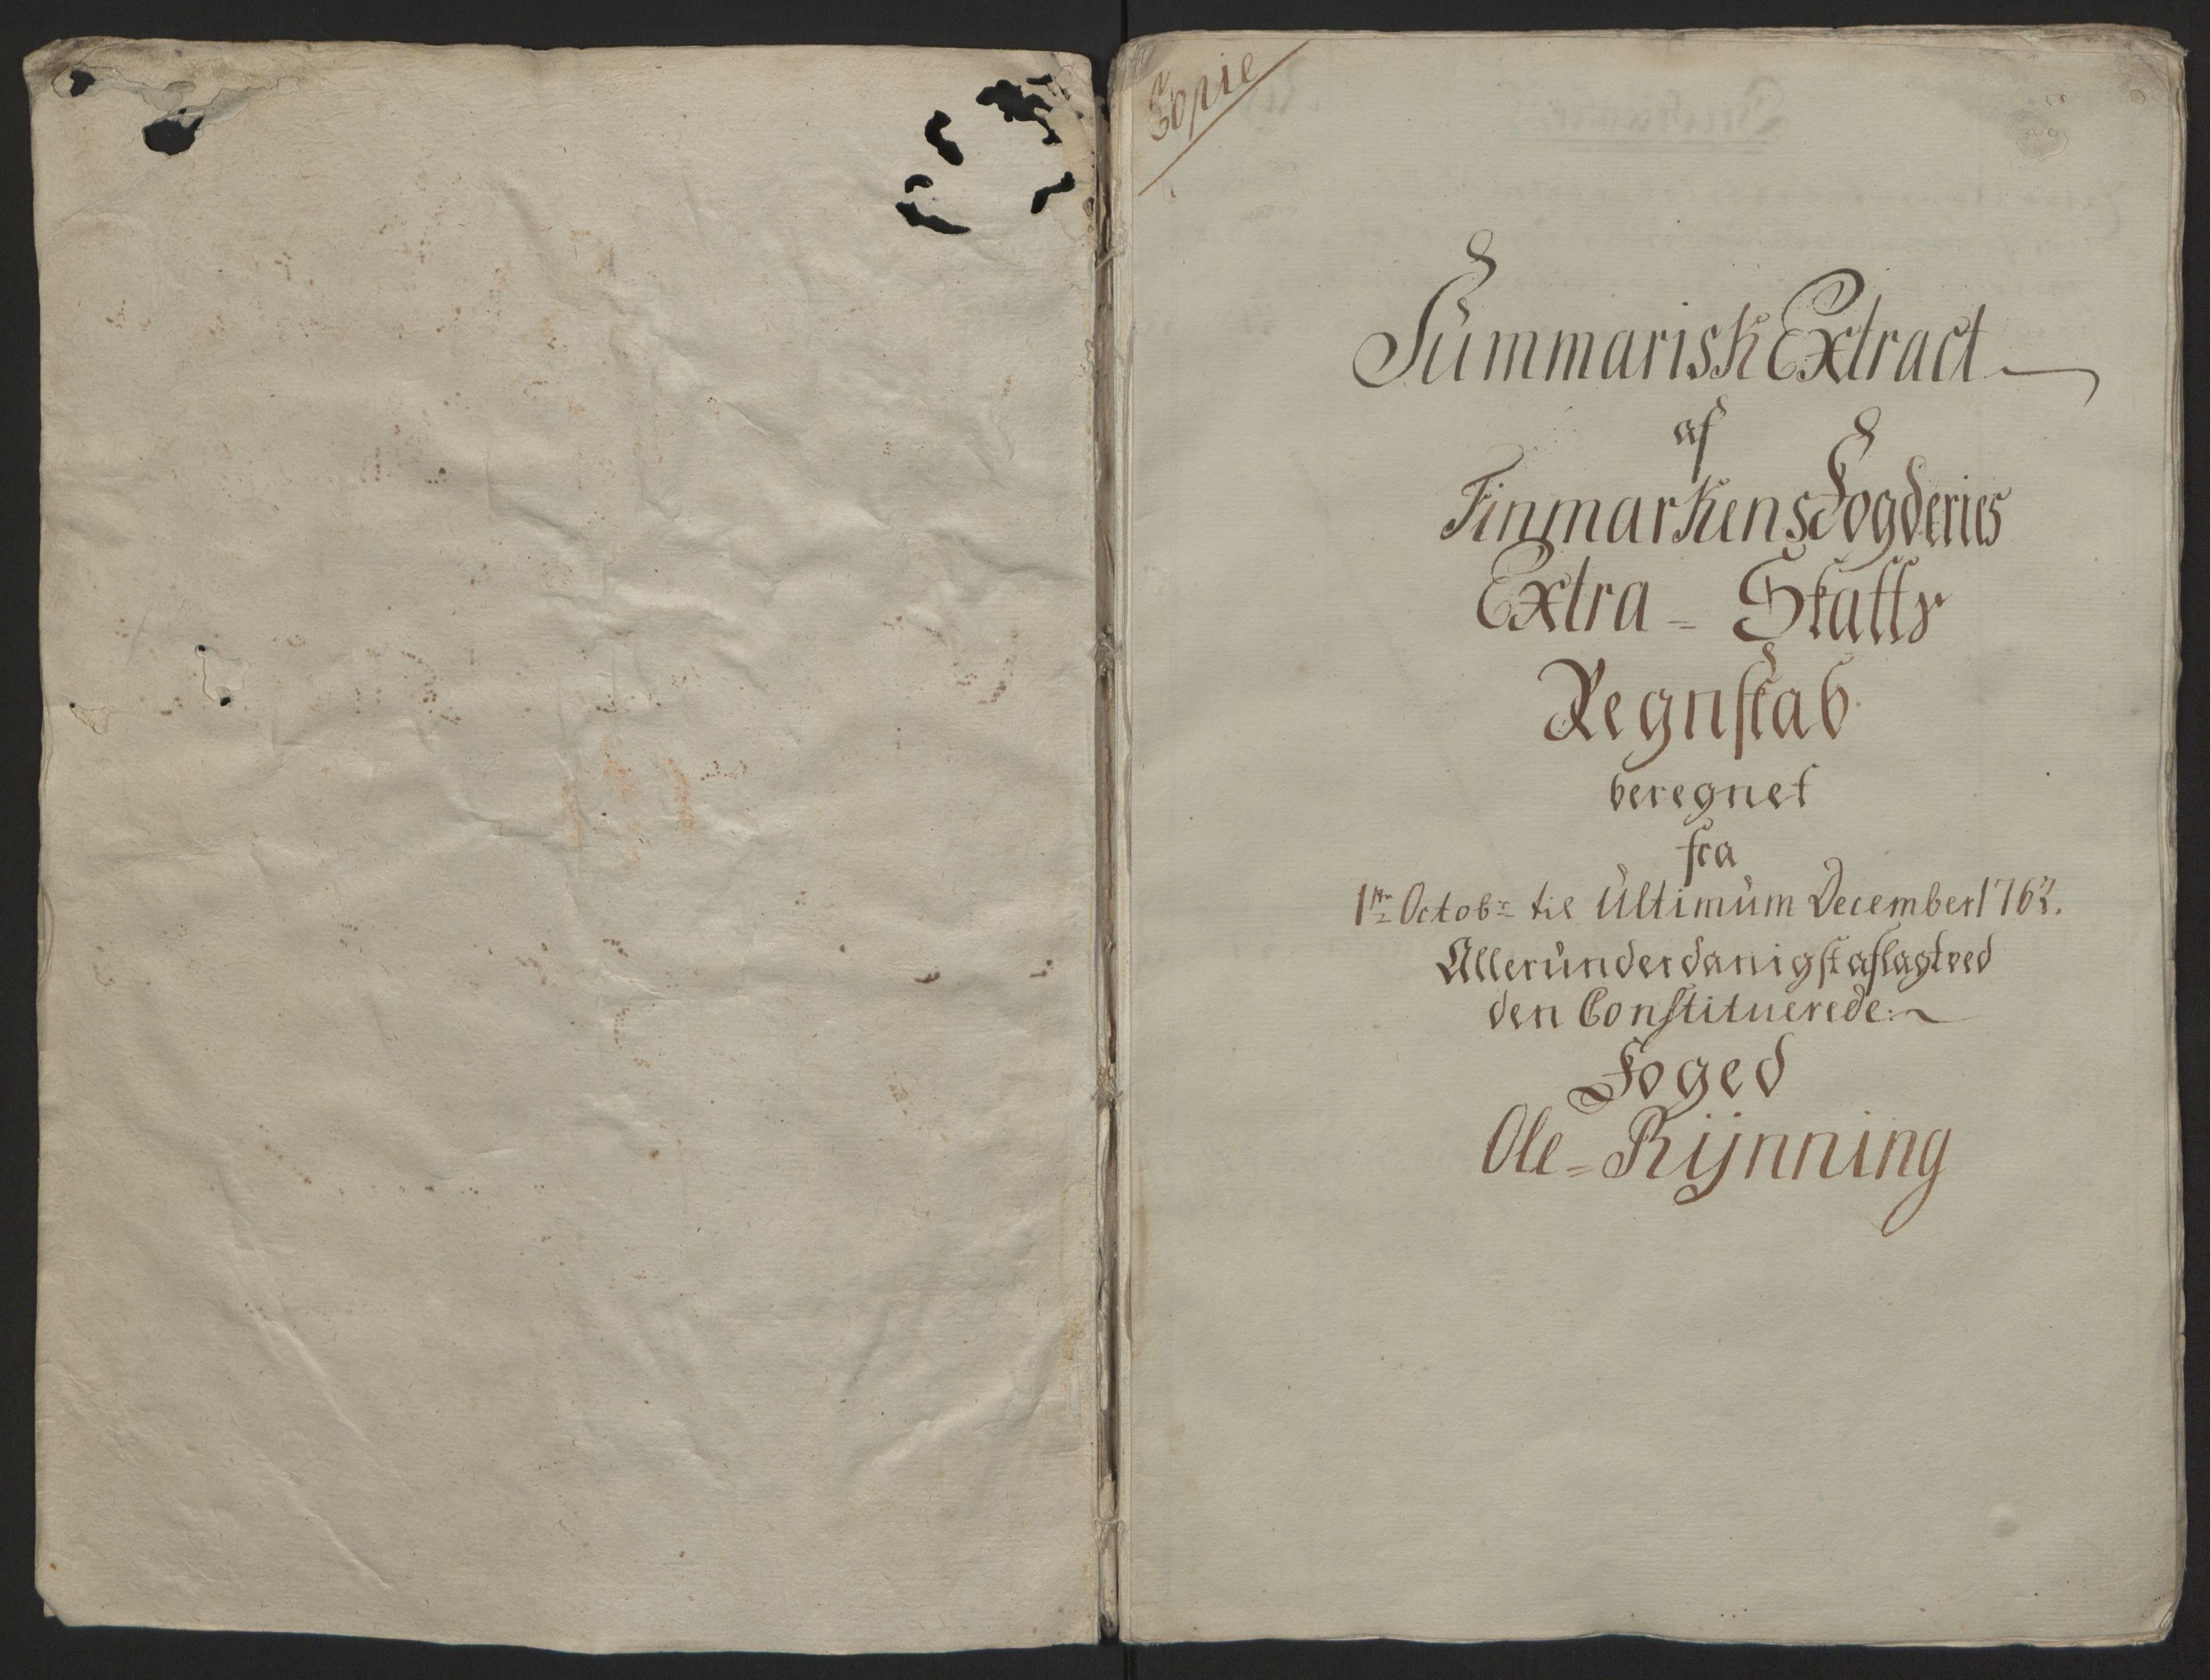 Copie
Summarisk Extract
af
Finmarkens Fogderies
Extra = Skatts
Regnskab
beregnet
fra
1ste Octobr til Ultimum December 1762.
Allerunderdanigst aflagt ved
den Constituerede
Foged
Ole = Rijnning